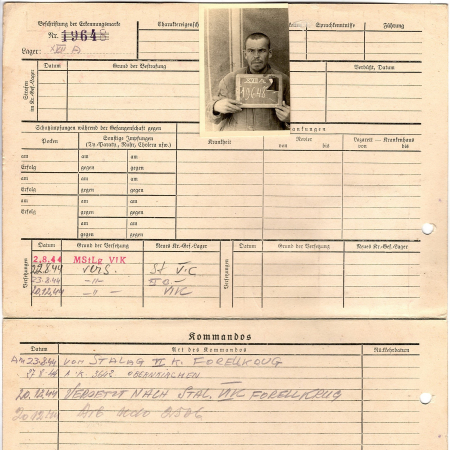 Beschriftung der Erkennungsmarke
Nr. 19648
Lager: XIII A
Charaktereigensch
Sprachkenntnisse
Führung
19648
Strafen im Kr.-Gef.-Lager
Datum
Grund der Bestrafung
Verbüßt, Datum
Schutzimpfungen während der Gefangenschaft gegen
Erkrankungen
Pocken
Sonstige Impfungen
(Ty.-Paraty., Ruhr, Cholera usw.)
Krankheit
Revier
von bis
Lazarett — Krankenhaus
von bis
am am am
Erfolg gegen gegen
am am am
Erfolg gegen gegen
am am am
Erfolg gegen gegen
am am am
Erfolg gegen gegen
am am
gegen gegen
Versetzungen
Datum Grund der Versetzung Neues Kr.-Gef.-Lager
Versetzungen
Datum Grund der Versetzung Neues Kr.-Gef.-Lager
2.8.44 MStLg VI K
22.8.44 vers. St VI C
23.8.44 -"-
20.12.44 -"- VI K
Kommandos
Datum Art des Kommandos Rückkehrdatum
Am 23.8.44 von STALAG VI K. FORELLKRUG
OBERNKIRCHEN
20.12.44 VERSETZT NACH STAL. VI K FORELLKRUG
20.12.44